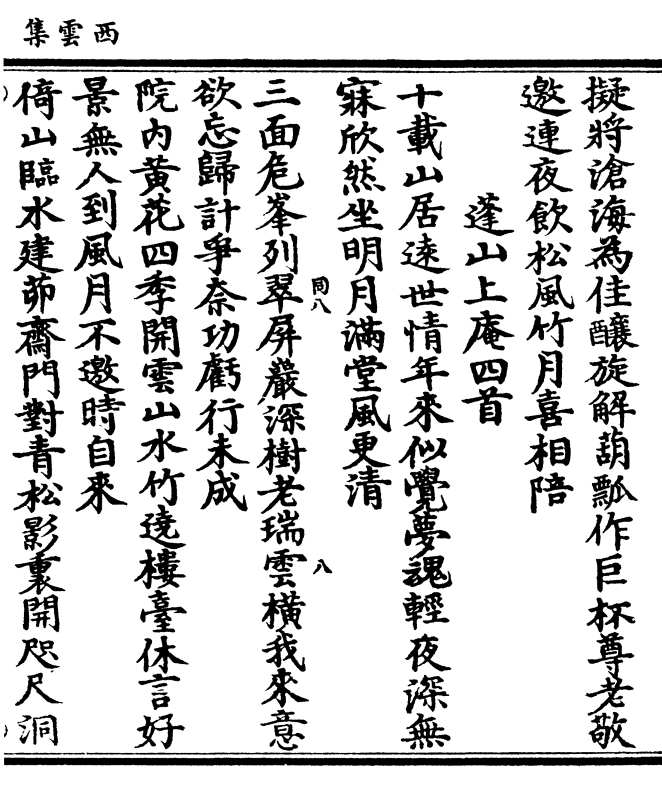 西雲集
擬將滄海為佳釀旋解葫瓢作巨杯尊老敬
邀連夜飲松風竹月喜相陪
蓬山上庵四首
十載山居遠世情年來似覺夢魂輕夜深無
寐欣然坐明月滿堂風更清
同八
八
三面危峯列翠屏巖深樹老瑞雲橫我來意
欲忘歸計爭奈功虧行未成
院內黃花四季開雲山水竹遶樓臺休言好
景無人到風月不邀時自來
倚山臨水建茆齋門對青松影裏開咫尺洞